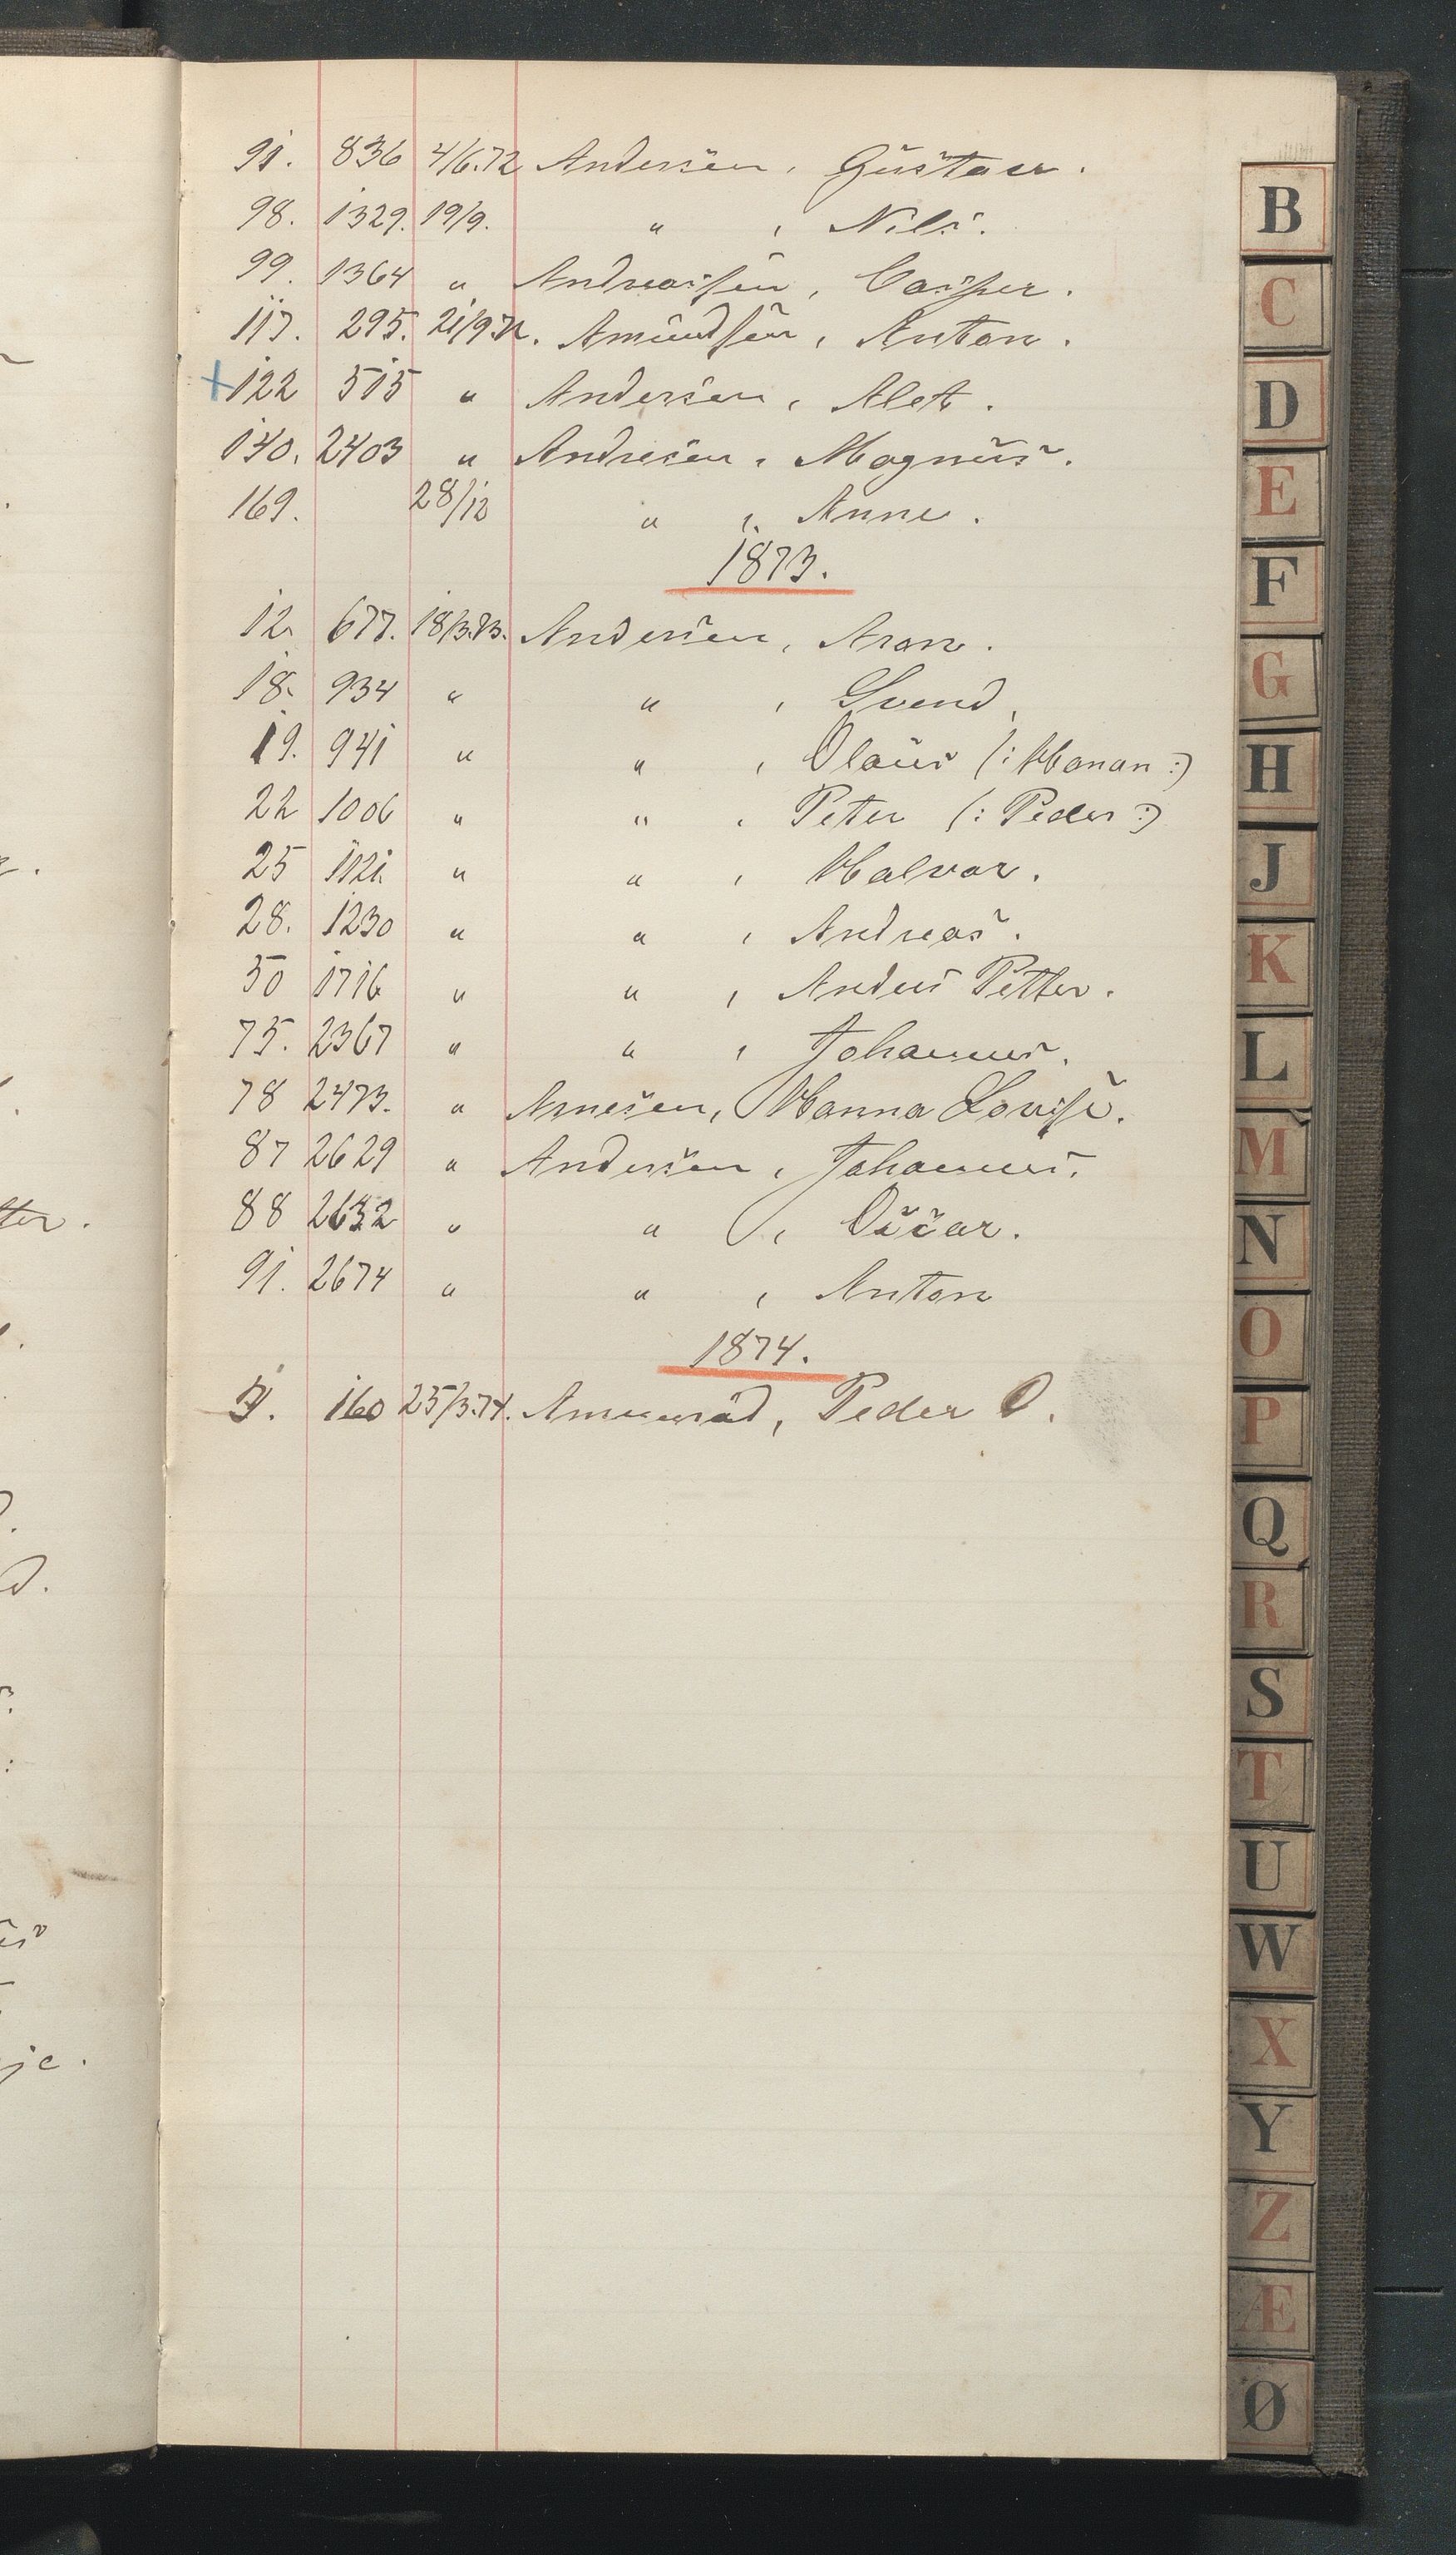 91. 836 4/6.72 Andersen, Gustav.
98. 1329. 19/9. " , Nils.
99. 1364 " Andreassen, Casper.
117. 295. 21/9.72. Amundsen, Anton.
+122 515 " Andersen, Alet.
140. 2403 " Andresen, Magnus.
169. 28/12 " , Anne.
1873.
12. 677. 18/3.73. Andersen, Aron.
18. 934 " " , Svend,
19. 941 " " , Olaus (: Hanan :)
22 1006 " " , Peter (: Peder :)
25 1121. " " , Halvor.
28. 1230 " " , Andreas.
50 1716 " " , Anders Petter.
75. 2367 " " , Johannes.
78 2473. " Arnesen, Hanna Lovise.
87 2629 " Andersen, Johannes.
88 2632 " " , Oscar.
91. 2674 " " , Anton
1874.
160 25/3.74. Peder O.
B
C
D
E
F
G
H
J
K
L
M
N
O
P
Q
R
S
T
U
W
X
Y
Z
Æ
Ø